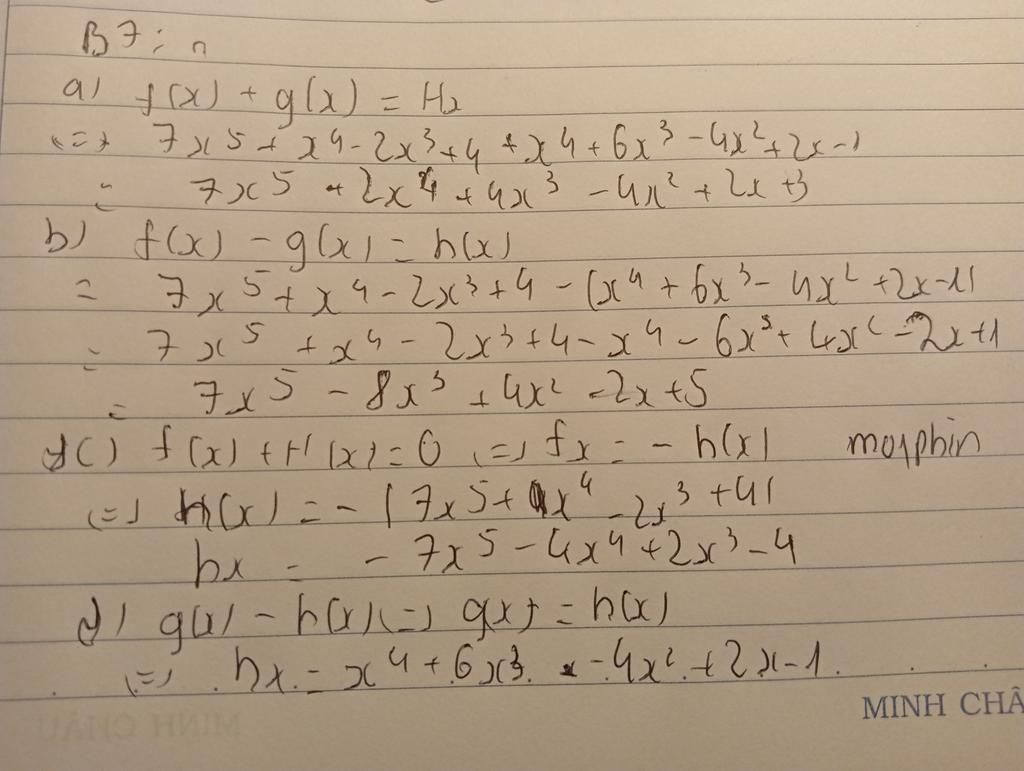 B7:
a) f(x) + g(x) = Hx
(=) 7x⁵ + x⁴ - 2x³ + 4 + x⁴ + 6x³ - 4x² + 2x - 1
= 7x⁵ + 2x⁴ + 4x³ - 4x² + 2x + 3
b) f(x) - g(x) = h(x)
= 7x⁵ + x⁴ - 2x³ + 4 - (x⁴ + 6x³ - 4x² + 2x - 1)
= 7x⁵ + x⁴ - 2x³ + 4 - x⁴ - 6x³ + 4x² - 2x + 1
= 7x⁵ - 8x³ + 4x² - 2x + 5
c) f(x) + H(x) = 0 (=) fx = - h(x) morphin
(=) h(x) = - (7x⁵ + 4x⁴ - 2x³ + 4)
hx = - 7x⁵ - 4x⁴ + 2x³ - 4
d) g(x) - h(x) (=) g(x) = h(x)
(=) hx = x⁴ + 6x³ - 4x² + 2x - 1.
MINH CHÂ